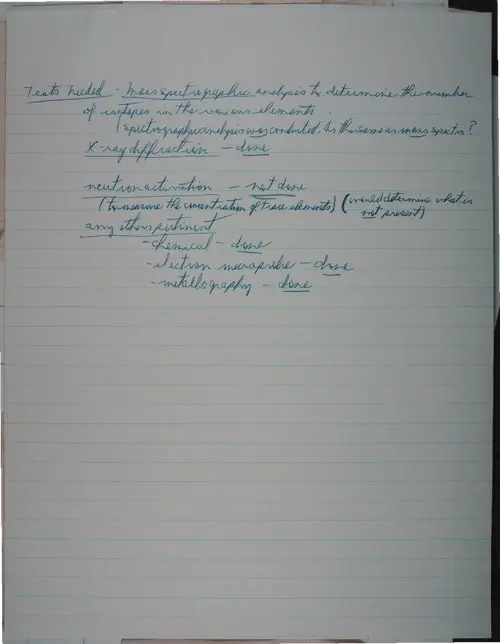 Tests Needed - Mass spectrographic analysis to determine the number
of isotopes in the various elements.
(spectrographic analysis was conducted. Is this same as mass spectro?
X-ray diffraction - done
neutron activation - not done
(to measure the concentration of trace elements) (would determine what is
not present)
any others pertinent
- chemical - done
- electron microprobe - done
- metallography - done